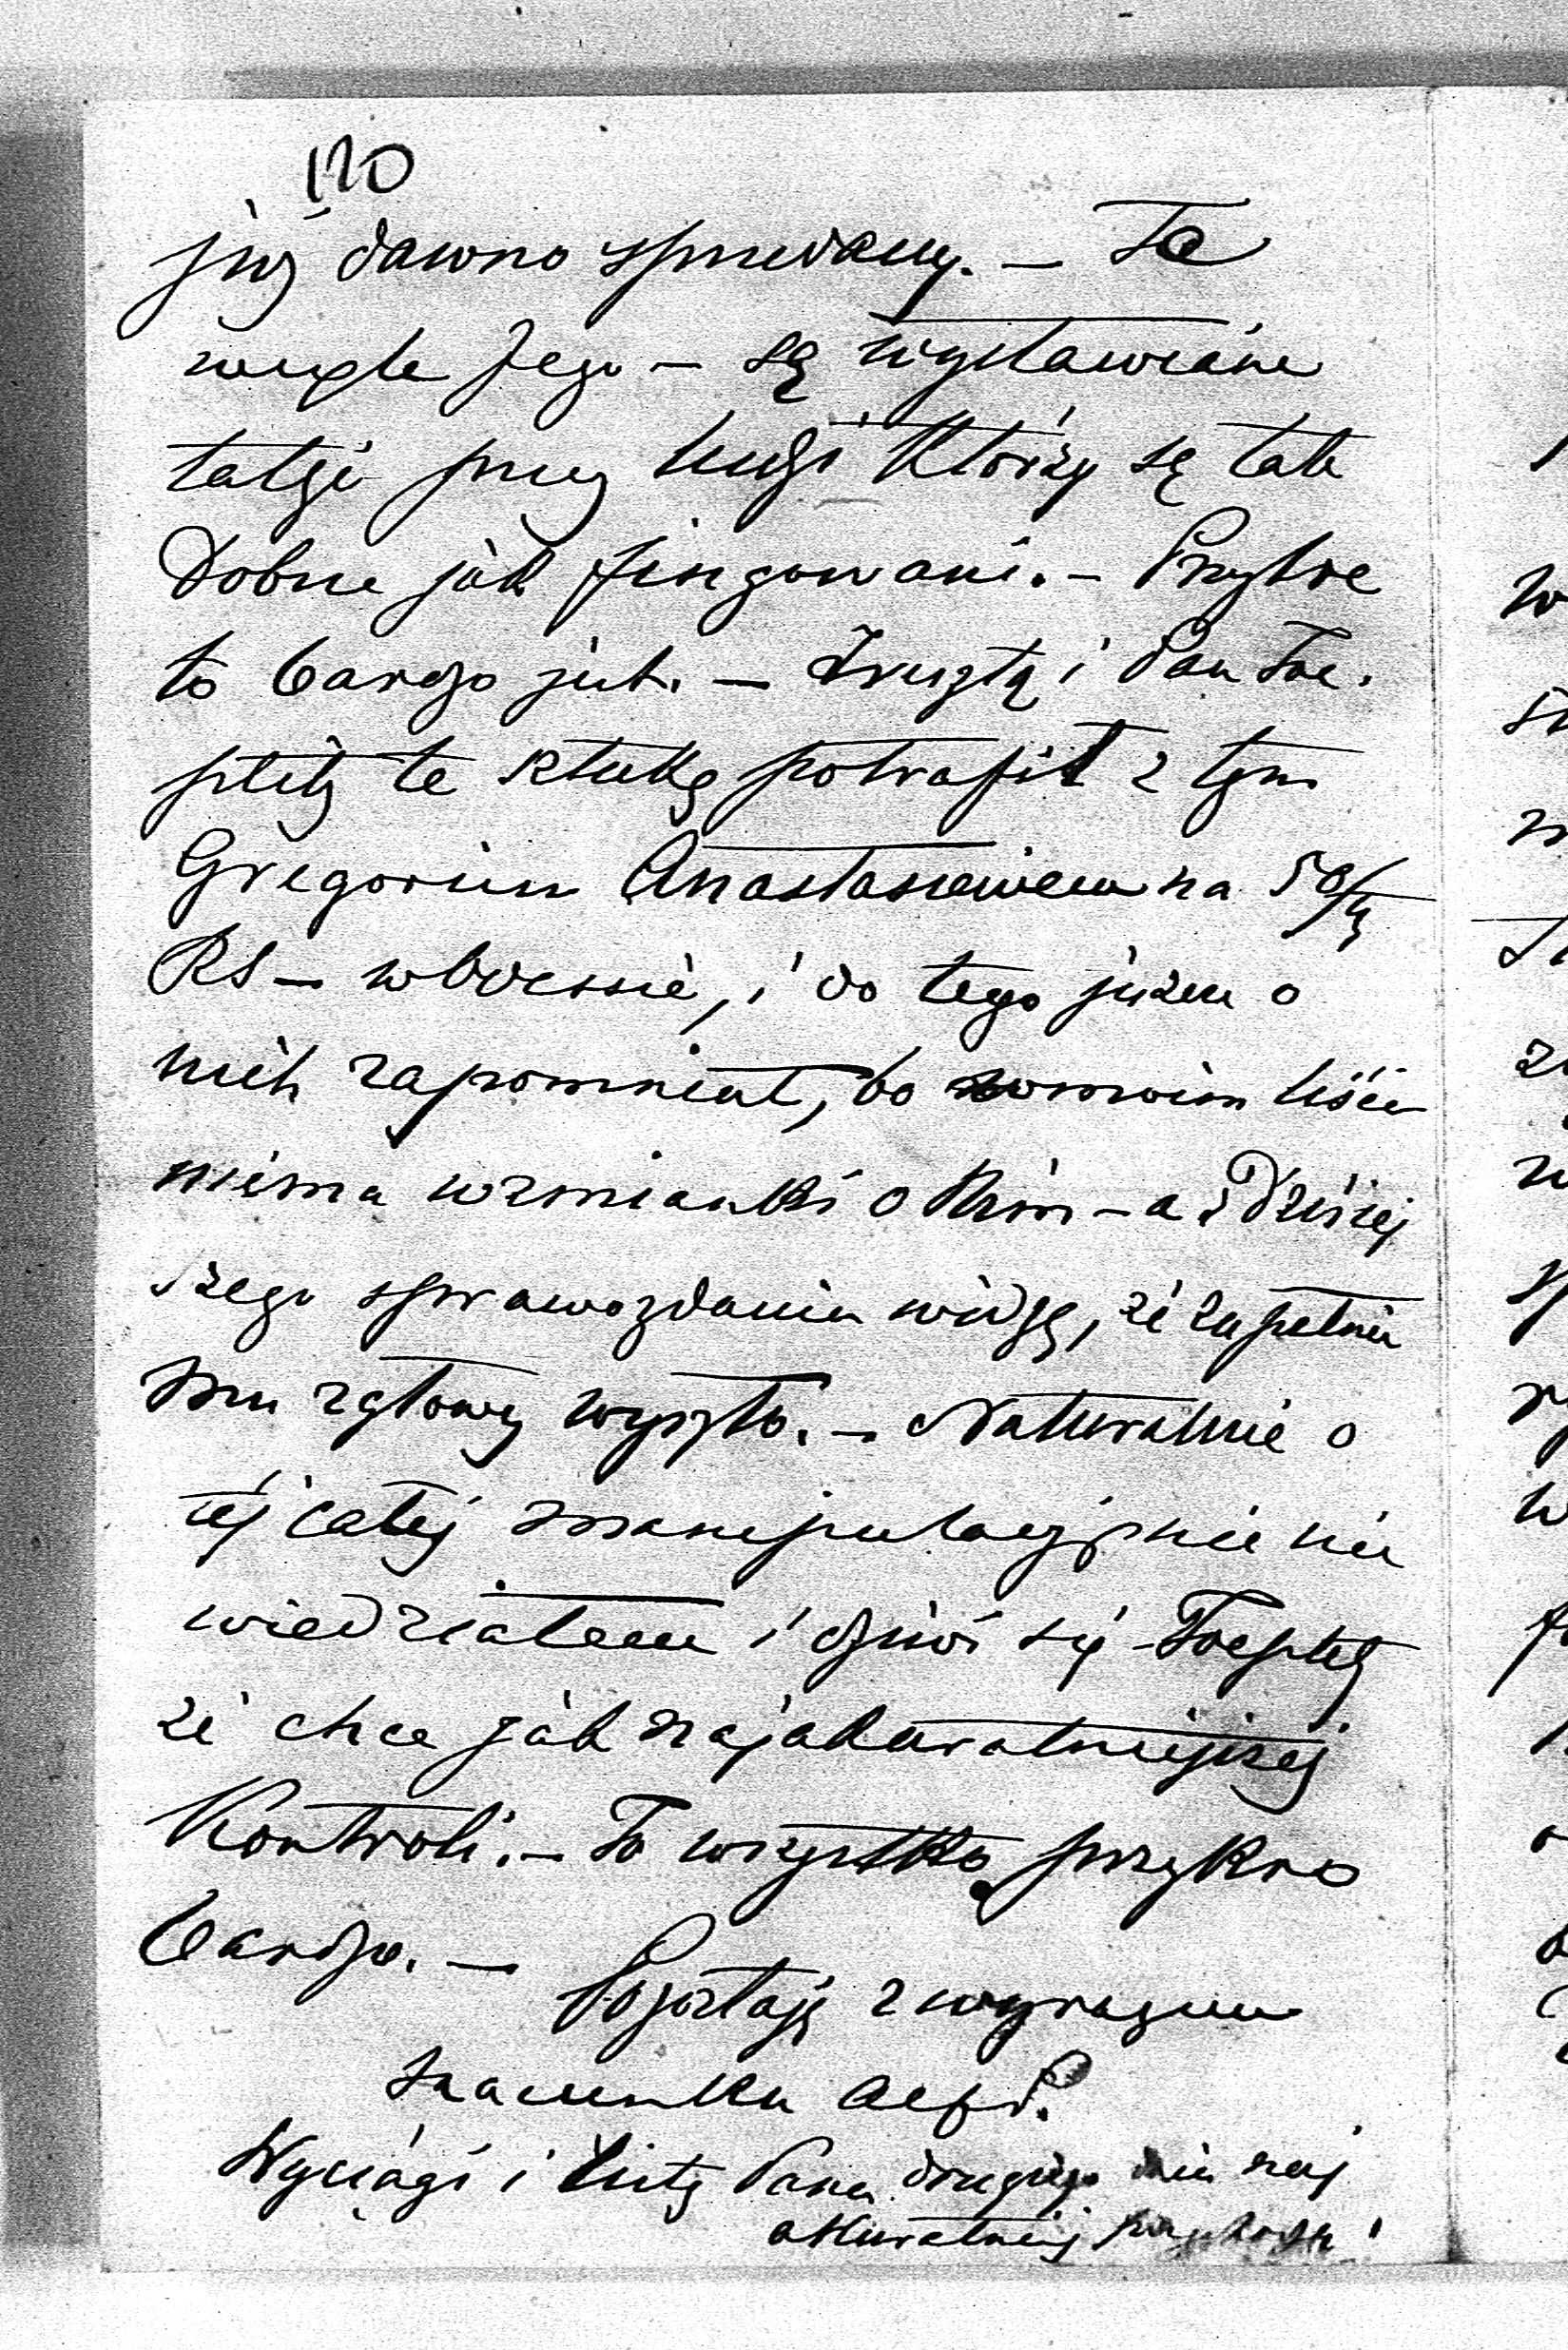 120
już dawno sprzedany. — Te
wexle Jego — są wystawiane
także przez ludzi którzy są tak
dobrze jak fingowani. — Przykre
to bardzo jest. — Zresztą i Pan Toe-
plitz te sztukę potrafił z tym
Gregorium Anastasiewem na 50/m
RS — w Odessie, i do tego jużem o
nich zapomniał, bo w moim liście
niema wzmianki o Nim — a z dzisiej
szego sprawozdania widzę, że zupełnie
mu z głowy wyszło. — Naturalnie o
téj całéj manipulacyi nic nie
wiedziałem i dziwi się Toeplitz
że chcę jak najakuratniejszej
Kontroli. — To wszystko przykro
bardzo. —
Pozostaję z wyrazem
szacunku
Wyciągi i Listy Pana drugiego dnia naj
akuratniej